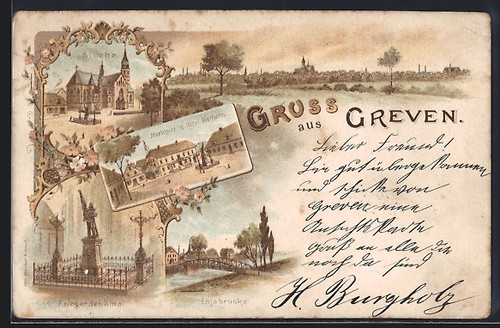 Kirche
Marktplatz
GRUSS
aus
GREVEN.
Lieber Freund!
Bin gut übergekommen
und schicke von
Greven eine
Ansichtskarte
Gruß an alle die
noch da sind
H. Burgholz
Kriegerdenkmal
Emsbrücke